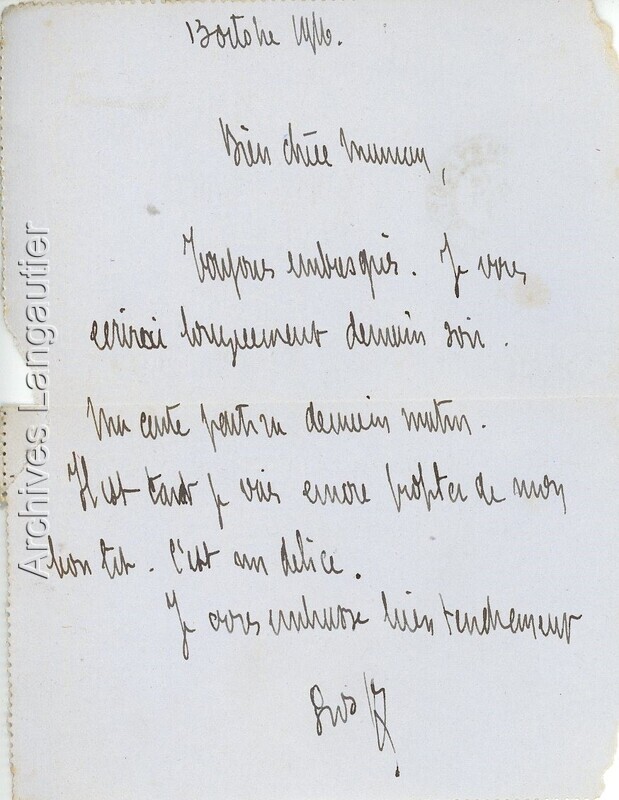 13 octobre 1916.
Bien chère Maman,
Toujours embusqués. Je vous
écrirai longuement demain soir.
Ma carte partira demain matin.
Il est tard je vais encore profiter de mon
bon lit. C'est un délice.
Je vous embrasse bien tendrement
Archives Langautier